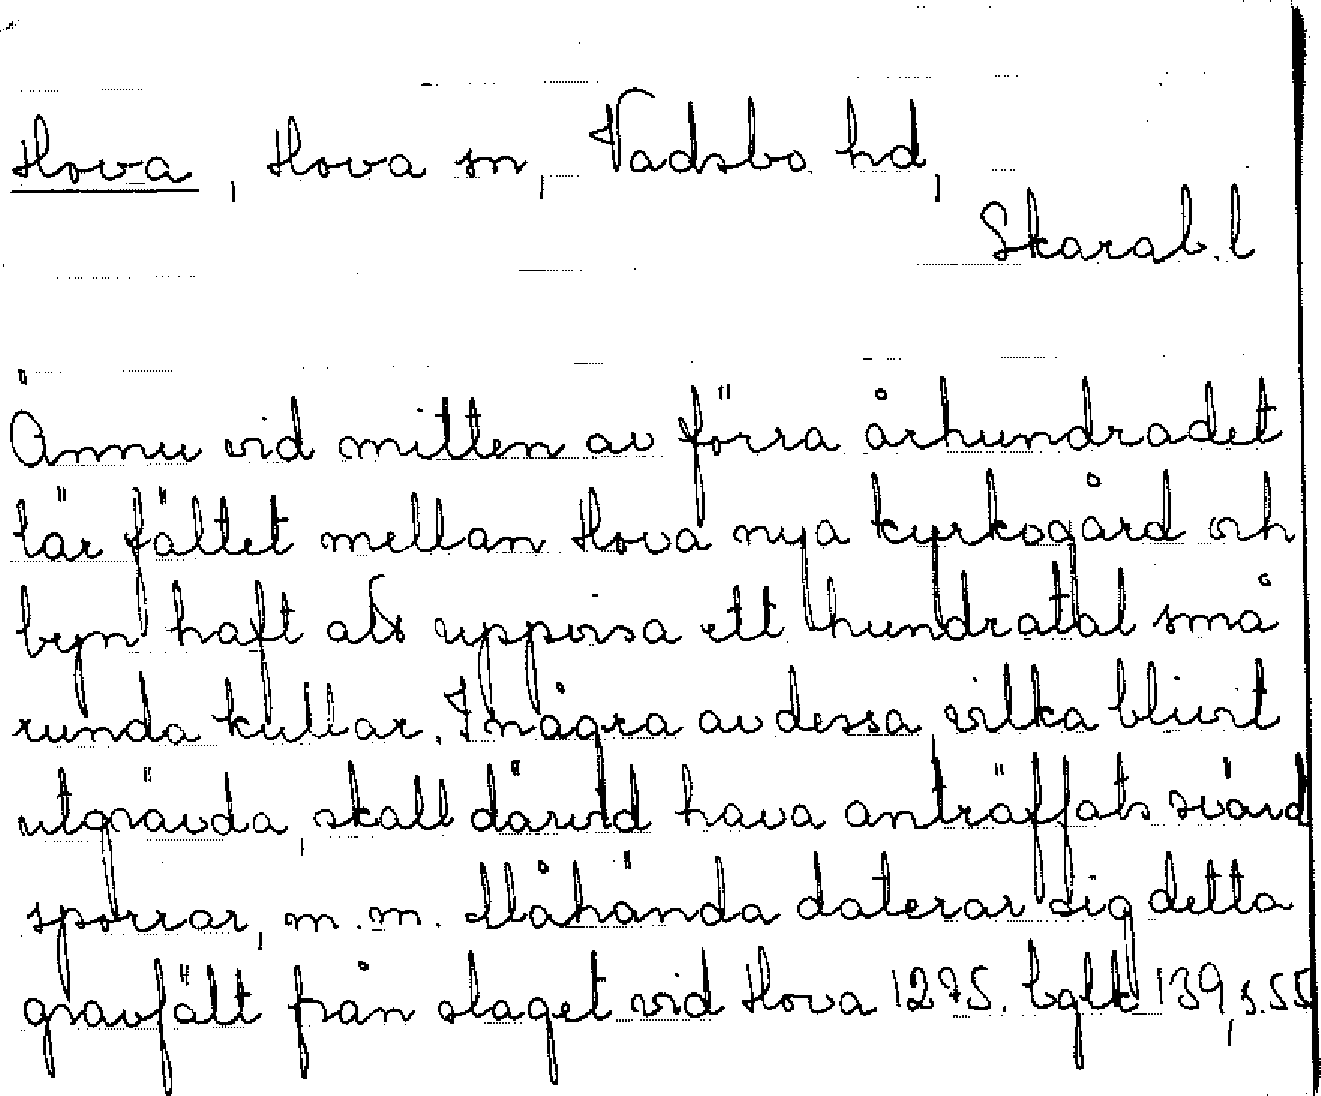 Hova, Hova sn, Vadsbo hd,
Skarab. l
Ännu vid mitten av förra århundradet
lär fältet mellan Hova nya kyrkogård och
byn haft att uppvisa ett hundratal små
runda kullar. I några av dessa vilka blivit
utgrävda, skall därvid hava anträffats svärd
sporrar, m.m. Måhända daterar sig detta
gravfält från slaget vid Hova 1275. lglt 139, s. 55